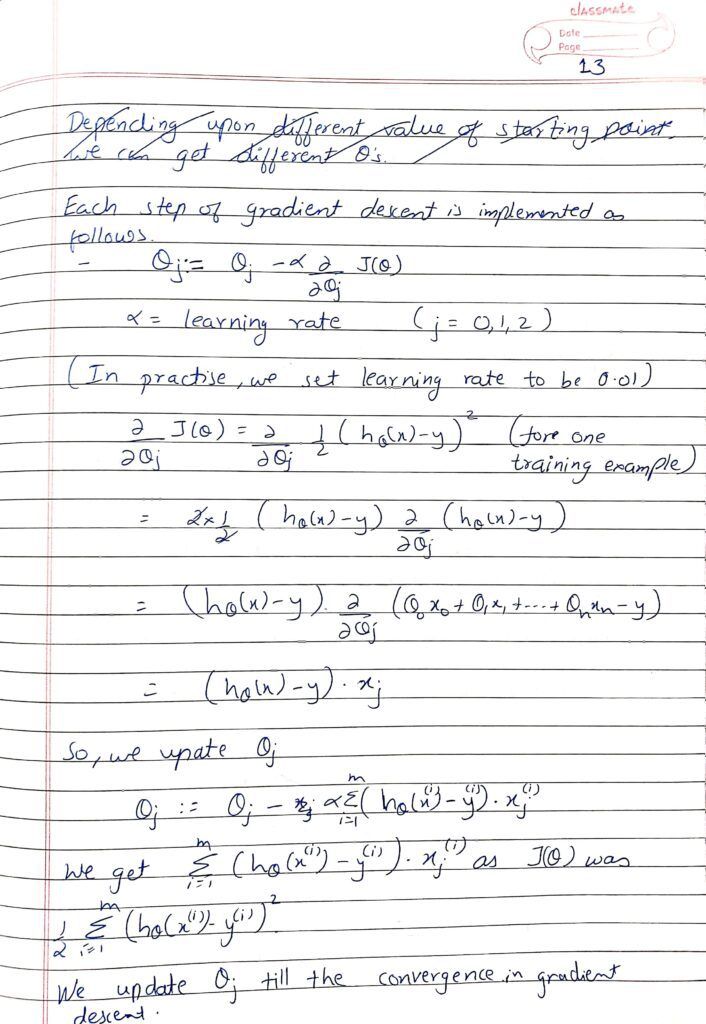 classmate
Date
Page
13
Depending upon different value of starting point.
we can get different θ's.
Each step of gradient descent is implemented as
follows.
- θj := θj - α ∂/∂θj J(θ)
α = learning rate (j = 0,1,2)
(In practise, we set learning rate to be 0.01)
∂/∂θj J(θ) = ∂/∂θj 1/2 (hθ(x)-y)² (fore one
training example)
= 2×1/2 (hθ(x)-y) ∂/∂θj (hθ(x)-y)
= (hθ(x)-y). ∂/∂θj (θ₀x₀+θ₁x₁+...+θₙxₙ-y)
= (hθ(x)-y).xj
So, we upate θj
θj := θj - α Σ_{i=1}^{m} (hθ(x^(i))-y^(i)).xj^(i)
We get Σ_{i=1}^{m} (hθ(x^(i))-y^(i)).xj^(i) as J(θ) was
1/2 Σ_{i=1}^{m} (hθ(x^(i))-y^(i))²
We update θj till the convergence in gradient
descent.